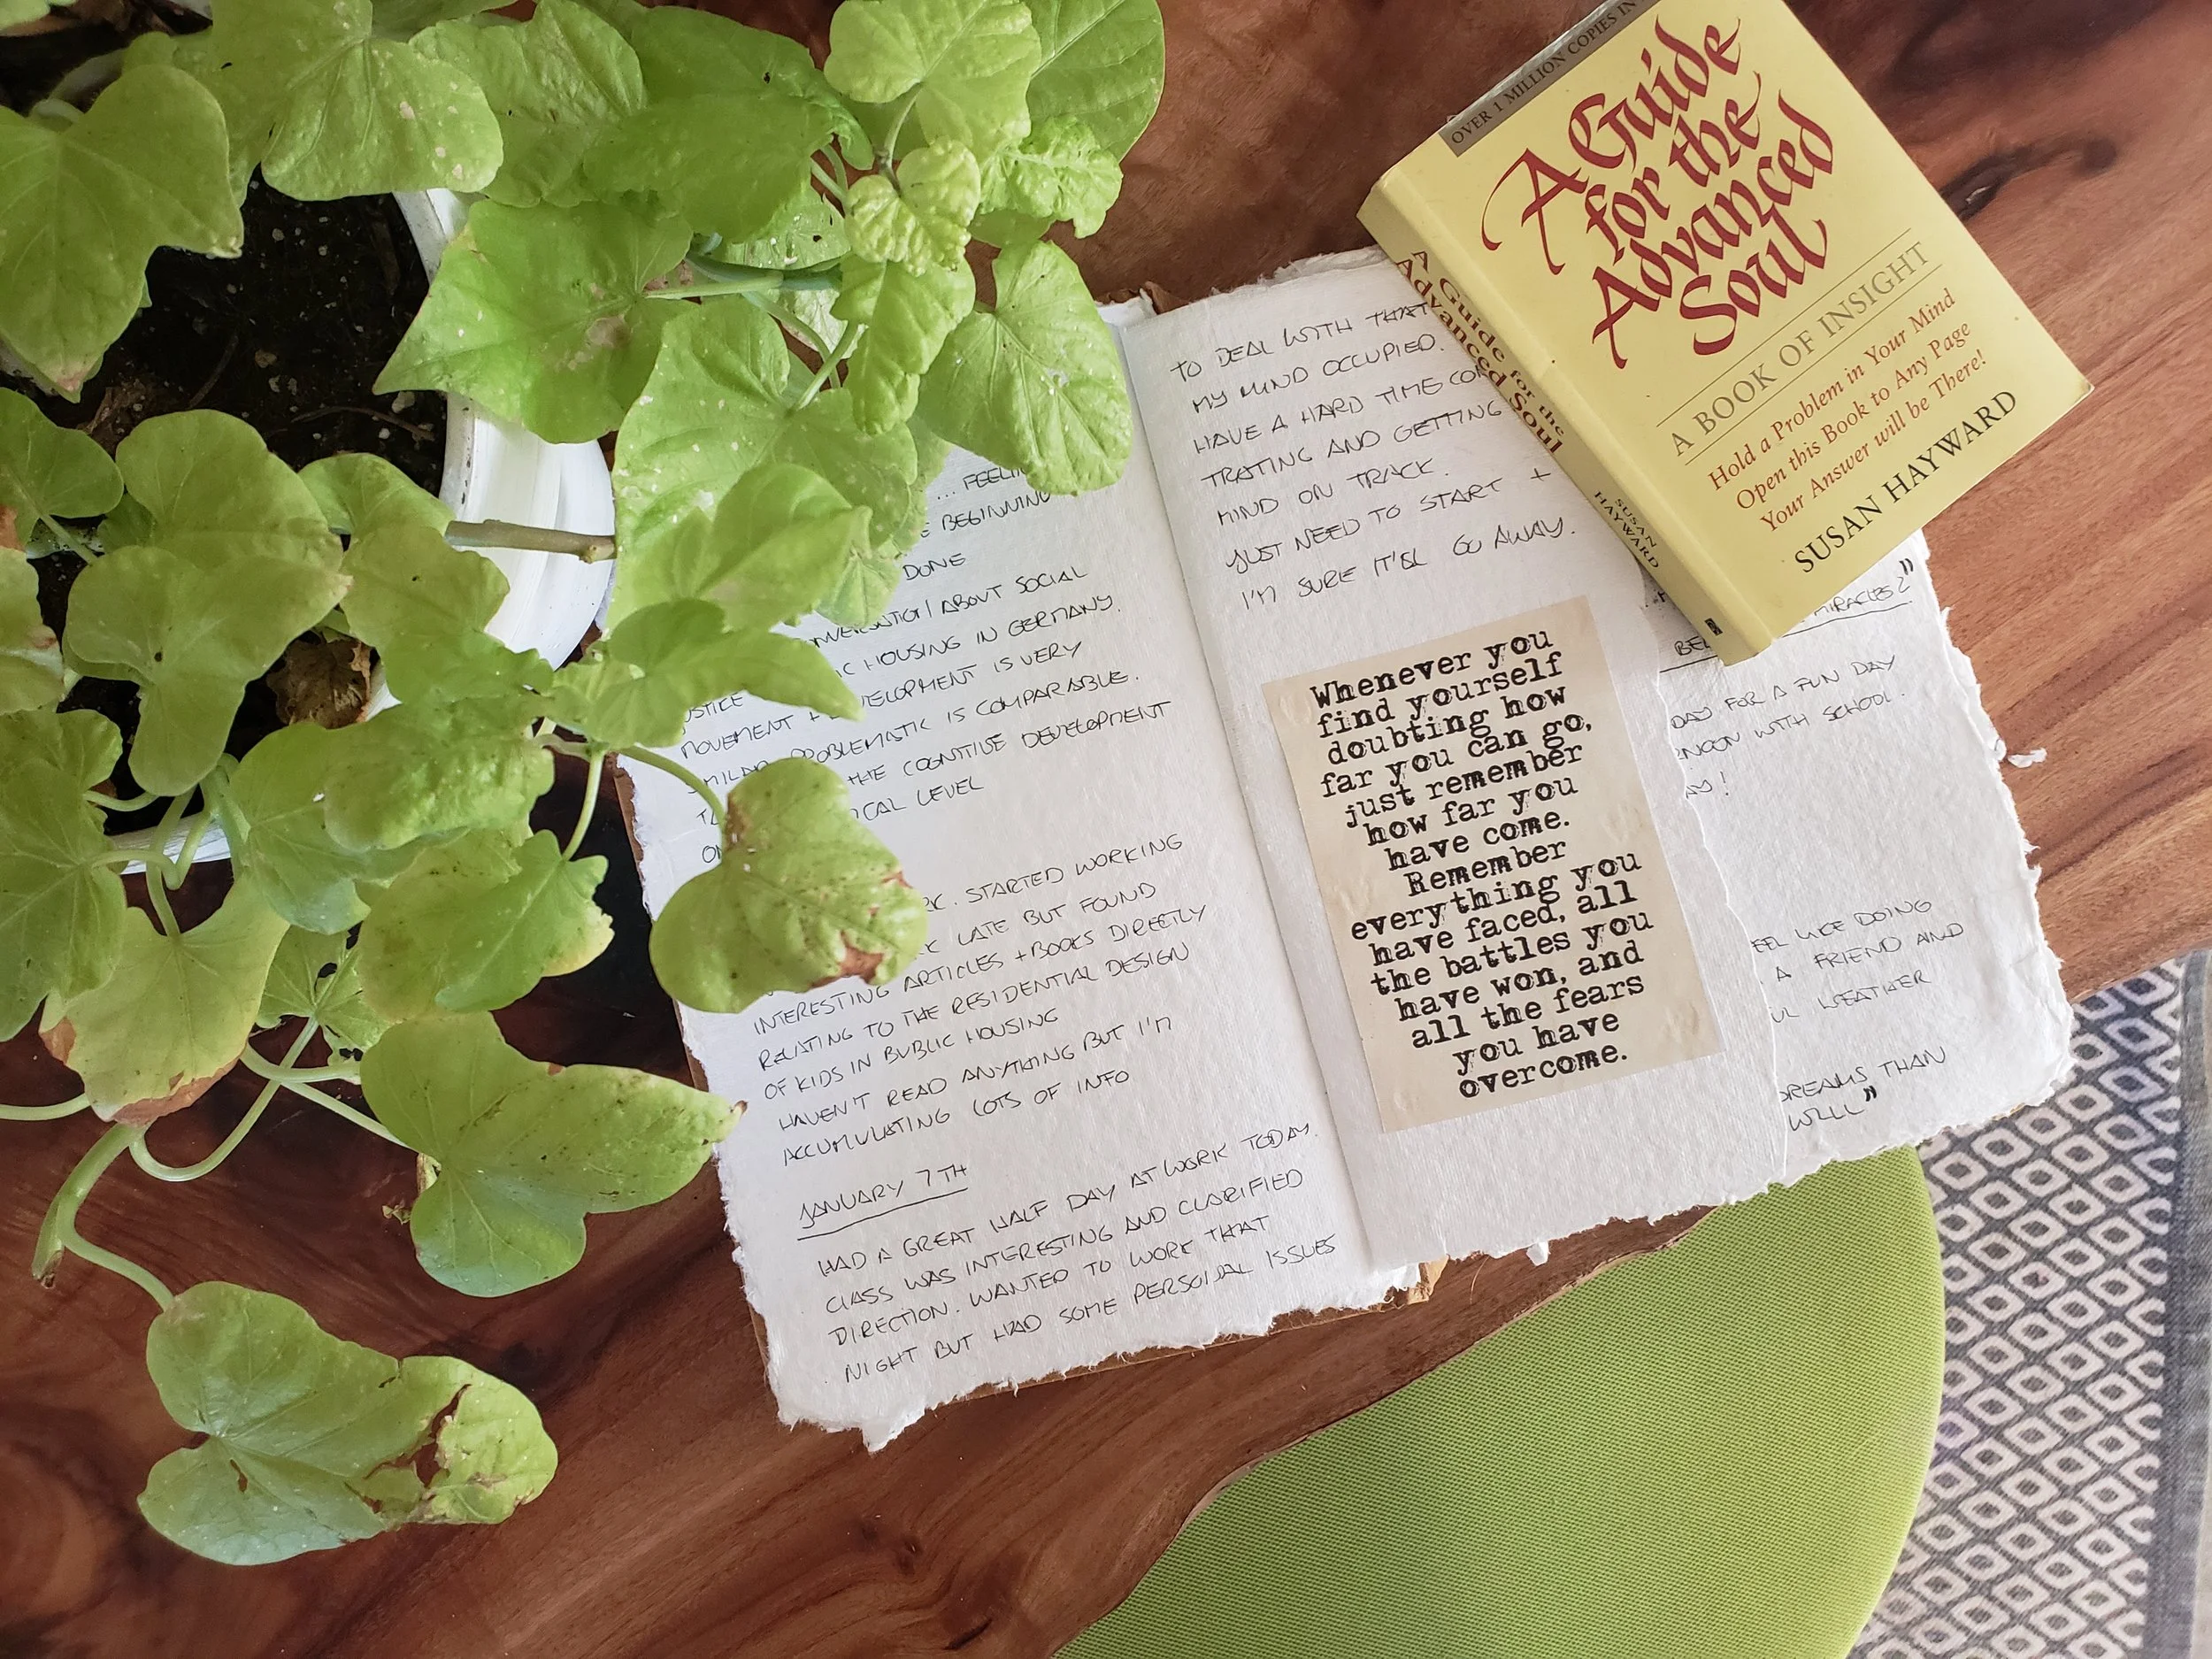 ... FEELIN
BEGINNING
DONE
ABOUT SOCIAL
USTICE IC HOUSING IN GERMANY.
MOVEMENT + DEVELOPMENT IS VERY
PROBLEMATIC IS COMPARABLE.
THE COGNITIVE DEVELOPMENT
ICAL LEVEL
RK. STARTED WORKING
LATE BUT FOUND
INTERESTING ARTICLES + BOOKS DIRECTLY
RELATING TO THE RESIDENTIAL DESIGN
OF KIDS IN PUBLIC HOUSING
HAVEN'T READ ANYTHING BUT I'M
ACCUMULATING LOTS OF INFO
JANUARY 7TH
HAD A GREAT HALF DAY AT WORK TODAY.
CLASS WAS INTERESTING AND CLARIFIED
DIRECTION. WANTED TO WORK THAT
NIGHT BUT HAD SOME PERSONAL ISSUES
TO DEAL WITH THAT
MY MIND OCCUPIED.
HAVE A HARD TIME CON
TRATING AND GETTING
MIND ON TRACK.
JUST NEED TO START +
I'M SURE IT'LL GO AWAY.
Whenever you
find yourself
doubting how
far you can go,
just remember
how far you
have come.
Remember
everything you
have faced, all
the battles you
have won, and
all the fears
you have
overcome.
MIRACLES"
BE
DAY FOR A FUN DAY
RNOON WITH SCHOOL.
AY!
EEL LIKE DOING
A FRIEND AND
UL WEATHER
DREAMS THAN
WILL"
OVER 1 MILLION COPIES IN
A Guide
for the
Advanced
Soul
A BOOK OF INSIGHT
Hold a Problem in Your Mind
Open this Book to Any Page
Your Answer will be There!
SUSAN HAYWARD
A Guide for the
Advanced Soul
SUSAN
HAYWARD